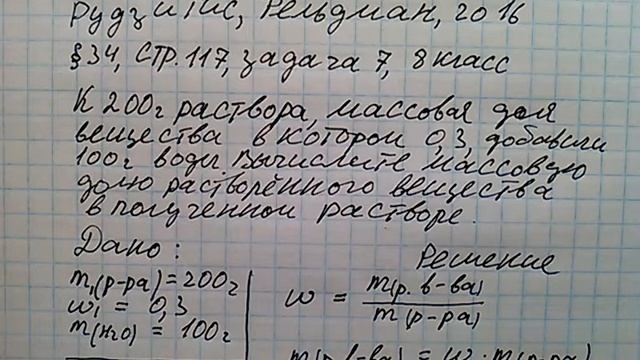 Рудзитис, Фельдман, 2016
§34, стр. 117, задача 7, 8 класс
К 200г раствора, массовая доля
вещества в котором 0,3, добавили
100г воды. Вычислите массовую
долю растворённого вещества
в полученном растворе.
Дано:
Решение
m₁(р-ра) = 200г
w₁ = 0,3
m(H₂O) = 100г
w = m(р. в-ва) / m(р-ра)
m(р.в-ва) = w · m(р-ра)